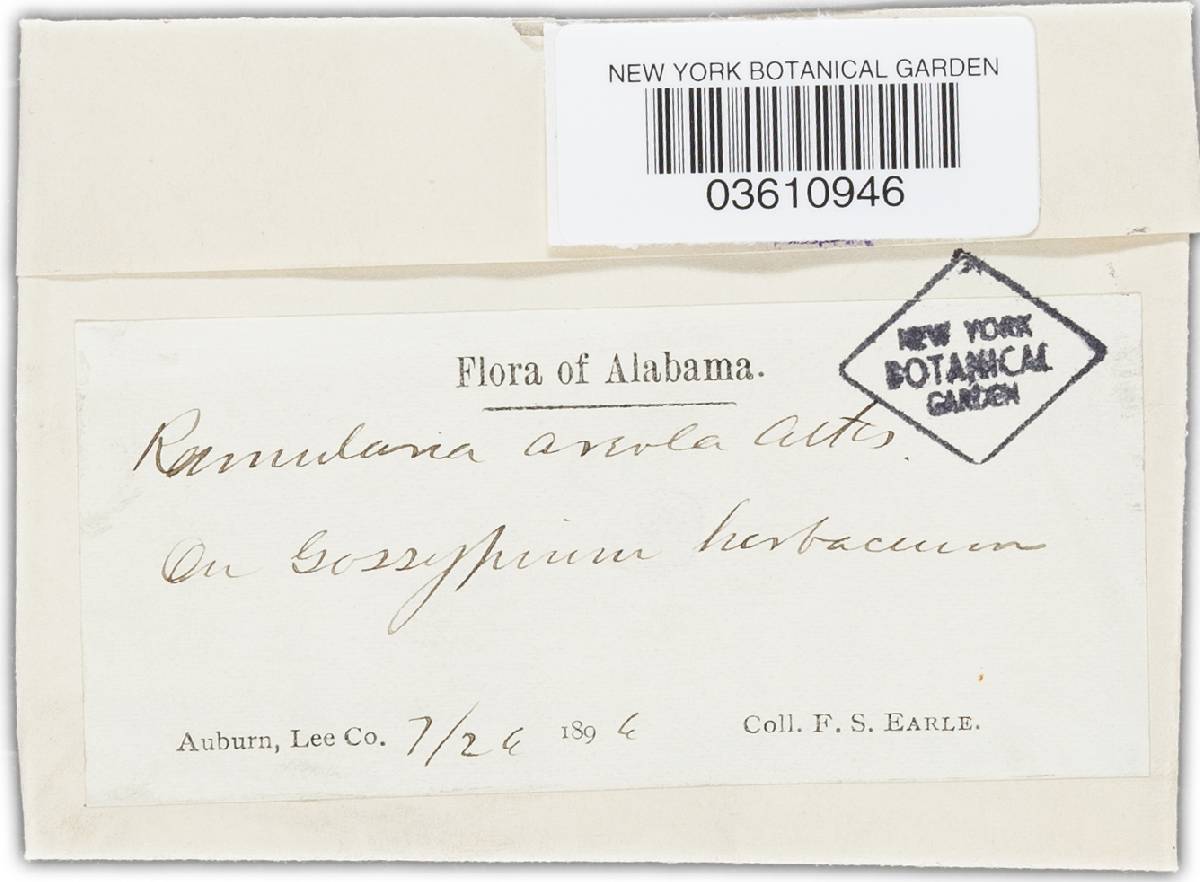 NEW YORK BOTANICAL GARDEN
03610946
NEW YORK
BOTANICAL
GARDEN
Flora of Alabama.
Ramularia areola Atks.
On Gossypium herbaceum
Auburn, Lee Co. 7/26 1896 Coll. F. S. EARLE.